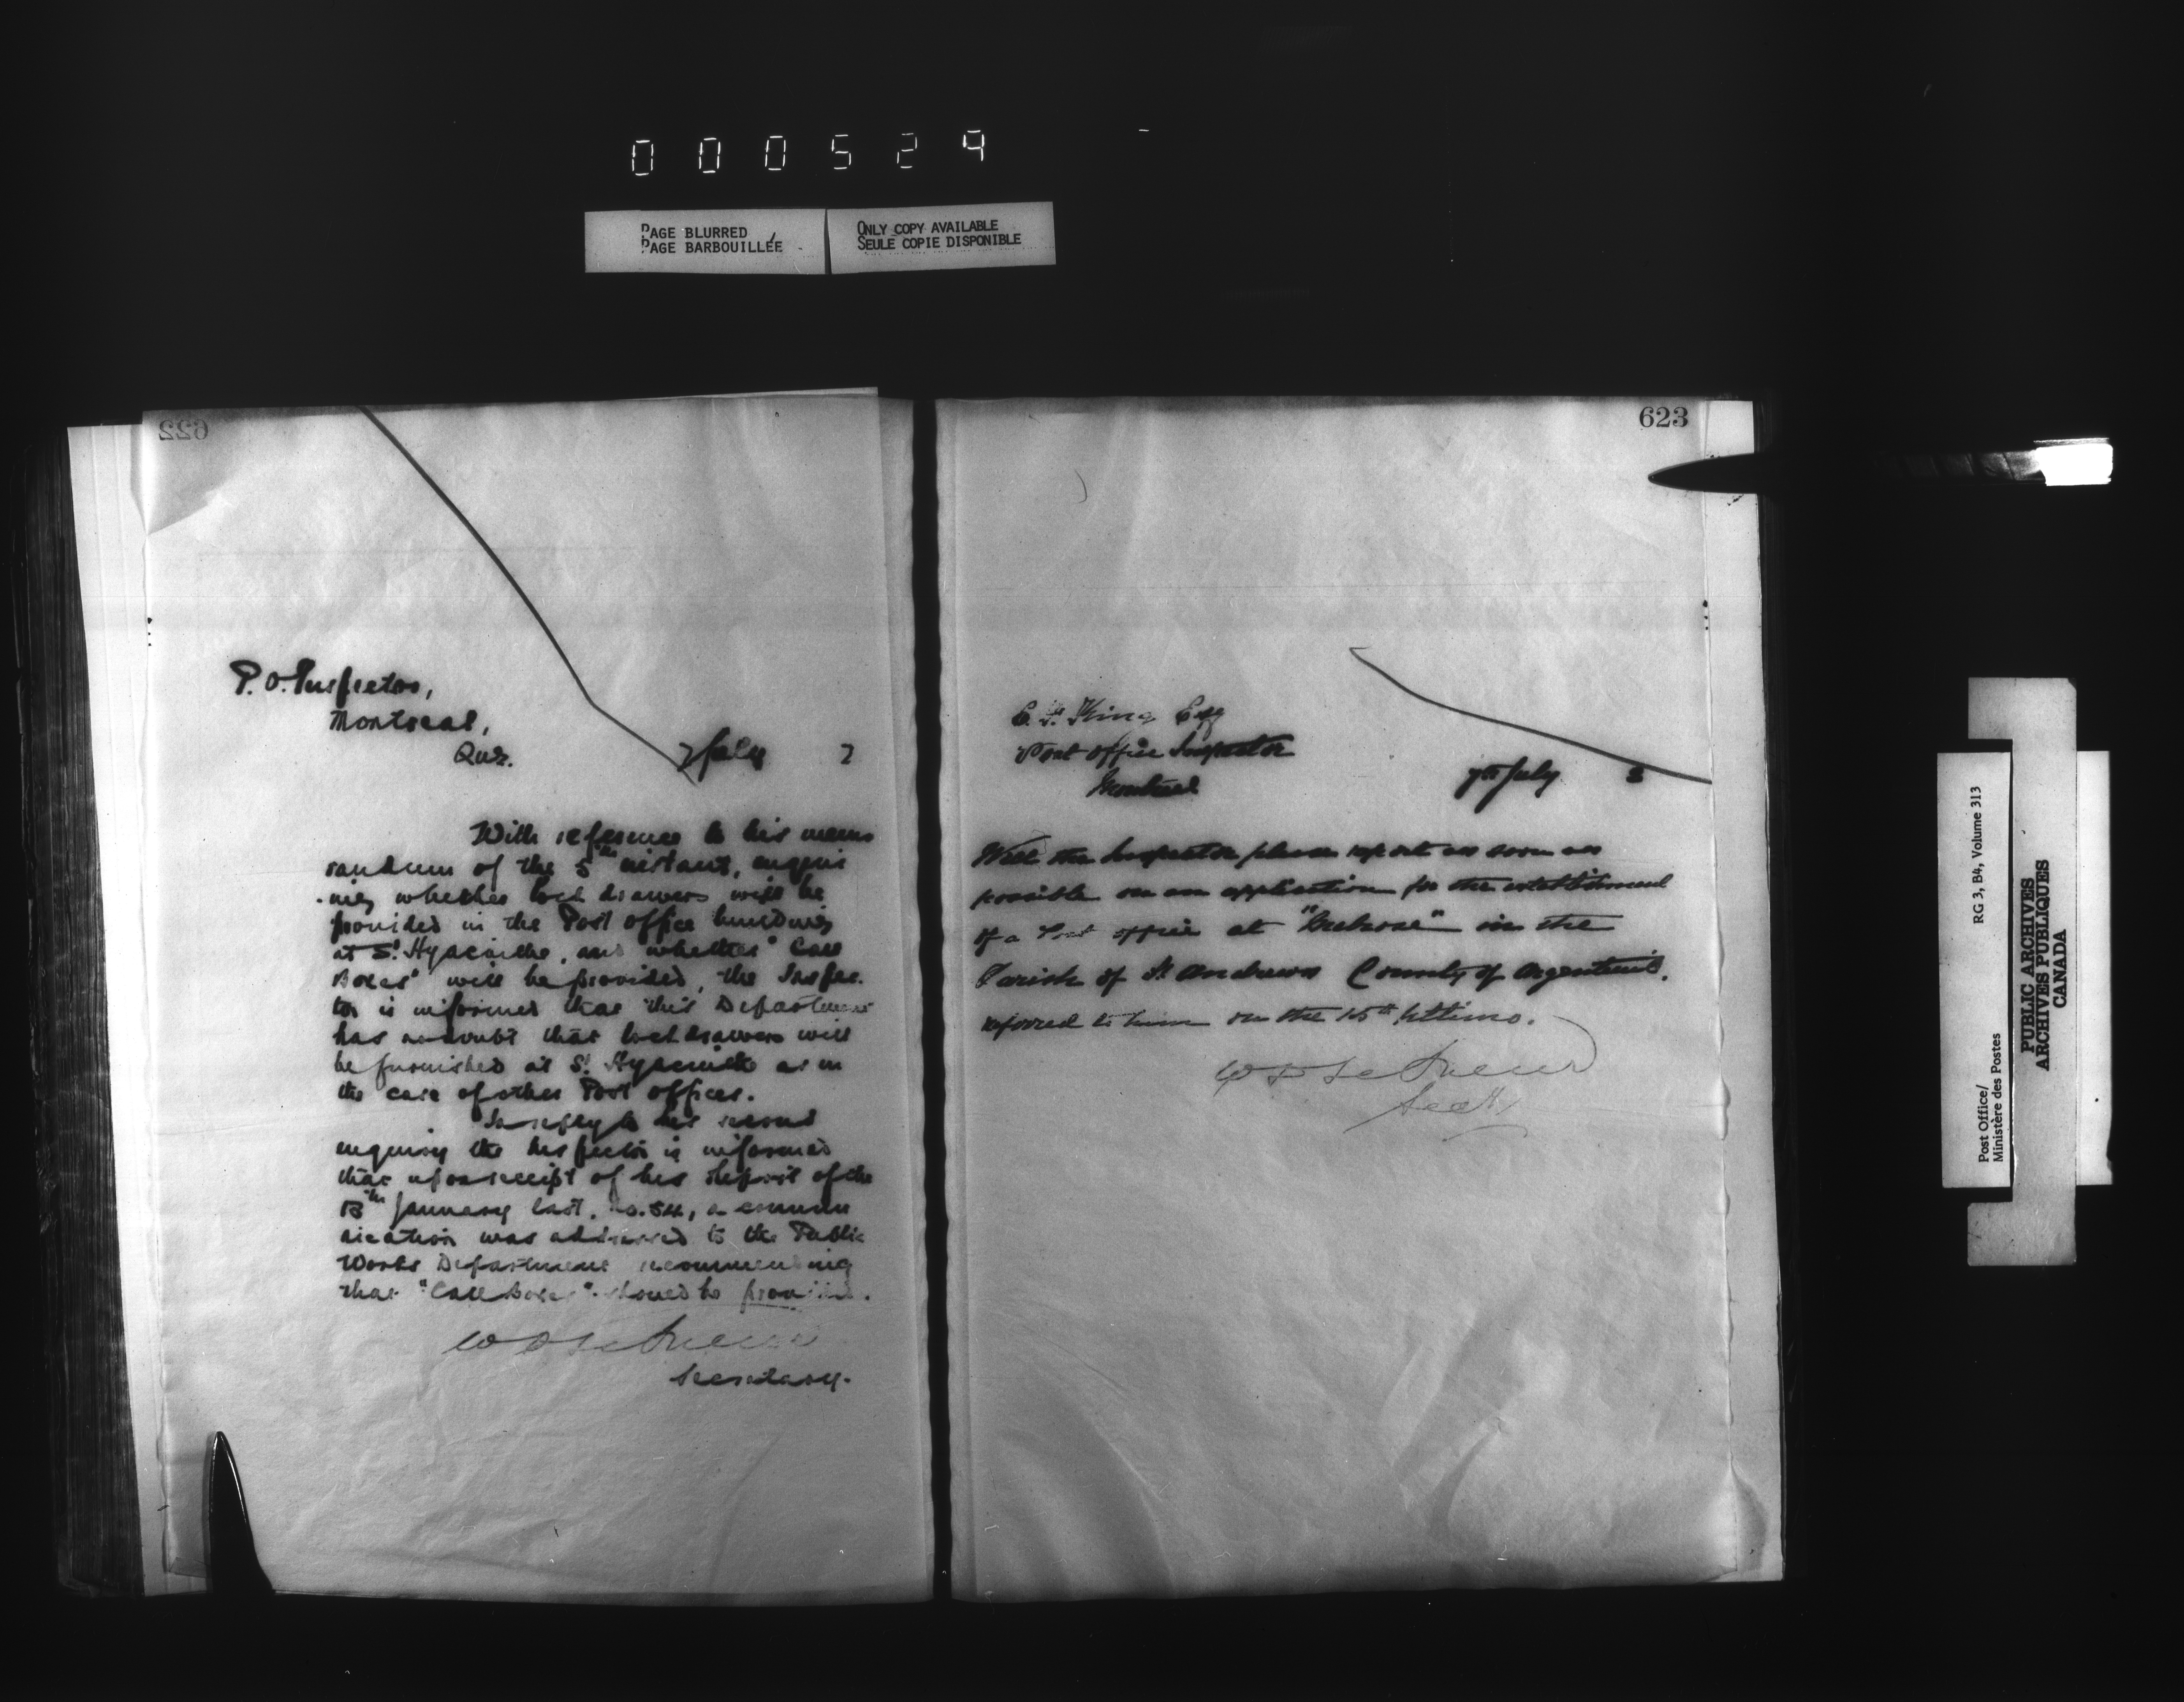 000529
PAGE BLURRED
PAGE BARBOUILLÉE
ONLY COPY AVAILABLE
SEULE COPIE DISPONIBLE
622
P. O. Inspector,
Montreal,
Que.
7 July 7
With reference to his memo
randum of the 5th instant, enquir
-ing whether lock drawers will be
provided in the Post Office building
at St. Hyacinthe, and whether "Call
Boxes" will be provided, the Inspec-
tor is informed that this Department
has no doubt that lock drawers will
be furnished at St. Hyacinthe as in
the case of other Post Offices.
In reply to his second
enquiry the Inspector is informed
that upon receipt of his report of the
13th January last, o.54, a commu
nication was addressed to the Public
Works Department recommending
that "Call Boxes" should be provided.
Secretary.
623
E. F. King Esq
Post Office Inspector
Montreal
7th July
Will the Inspector please report as soon as
possible on an application for the establishment
of a Post Office at "Melrose" in the
Parish of St. Andrews County of Argenteuil,
referred to him on the 15th Ultimo.
Secty
Post Office/
Ministère des Postes
RG 3, B4, Volume 313
PUBLIC ARCHIVES
ARCHIVES PUBLIQUES
CANADA